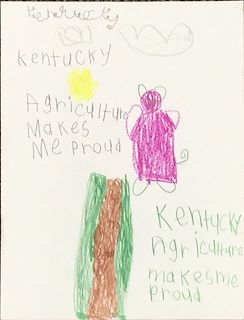 Kentucky
Kentucky
Agriculture
Makes
Me Proud
Kentucky
Agriculture
makes me
proud